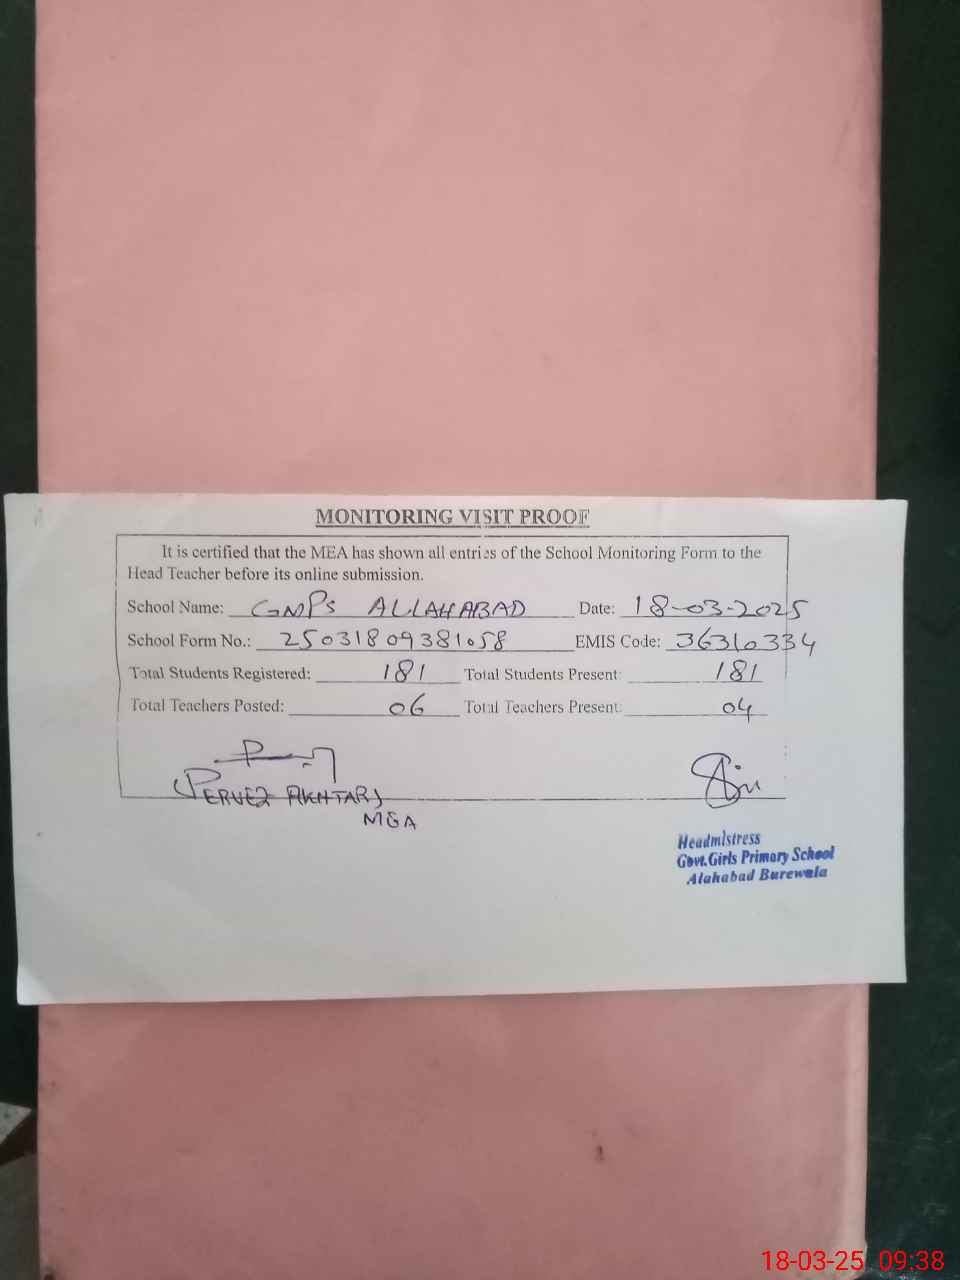 MONITORING VISIT PROOF
It is certified that the MEA has shown all entries of the School Monitoring Form to the
Head Teacher before its online submission.
School Name: GMPS ALLAHABAD Date: 18-03-2025
School Form No.: 25031809381058 EMIS Code: 36310334
Total Students Registered: 181 Total Students Present: 181
Total Teachers Posted: 06 Total Teachers Present: 04
(PERVEZ AKHTAR)
MEA
Headmistress
Govt.Girls Primary School
Alahabad Burewala
18-03-25 09:38